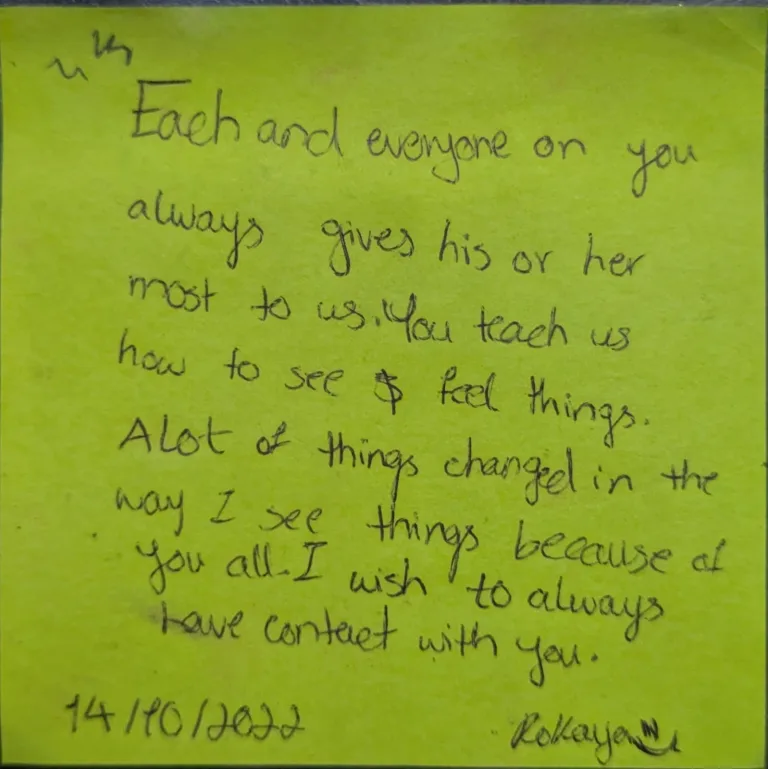 Each and everyone on you
always gives his or her
most to us. You teach us
how to see $ feel things.
A lot of things changed in the
way I see things because of
you all. I wish to always
have contact with you.
14/10/2022 Rokaya